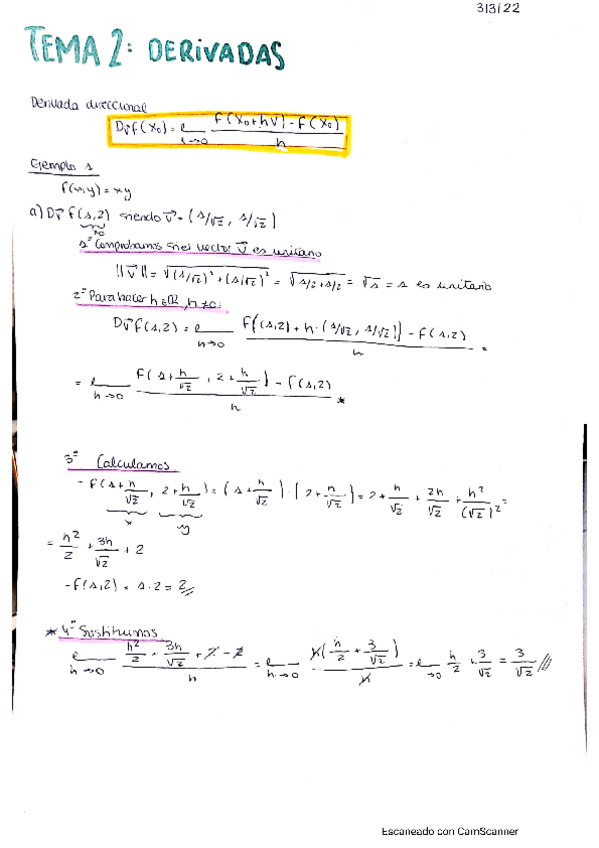 3/3/22
TEMA 2: DERIVADAS
Derivada direccional
D_v⃗ f(x₀) = ℓ_{h→0} (f(x₀+hv) - f(x₀)) / h
Ejemplo 1
f(x,y) = xy
a) D_v⃗ f(1,2) siendo v⃗ = (1/√2, 1/√2)
x₀
1º Comprobamos si el vector v⃗ es unitario
||v⃗|| = √((1/√2)² + (1/√2)²) = √(1/2+1/2) = √1 = 1 es unitario
2º Para hacer h∈ℝ, h≠0:
D_v⃗ f(1,2) = ℓ_{h→0} (f((1,2) + h·(1/√2, 1/√2)) - f(1,2)) / h =
= ℓ_{h→0} (f(1+h/√2, 2+h/√2) - f(1,2)) / h *
3º Calculamos
- f(1+h/√2, 2+h/√2) = (1+h/√2)·(2+h/√2) = 2 + h/√2 + 2h/√2 + h²/(√2)² =
x y
= h²/2 + 3h/√2 + 2
- f(1,2) = 1·2 = 2//
* 4º Sustituimos
ℓ_{h→0} (h²/2 + 3h/√2 + 2 - 2) / h = ℓ_{h→0} h(h/2 + 3/√2) / h = ℓ_{→0} h/2 + 3/√2 = 3/√2 ///
Escaneado con CamScanner